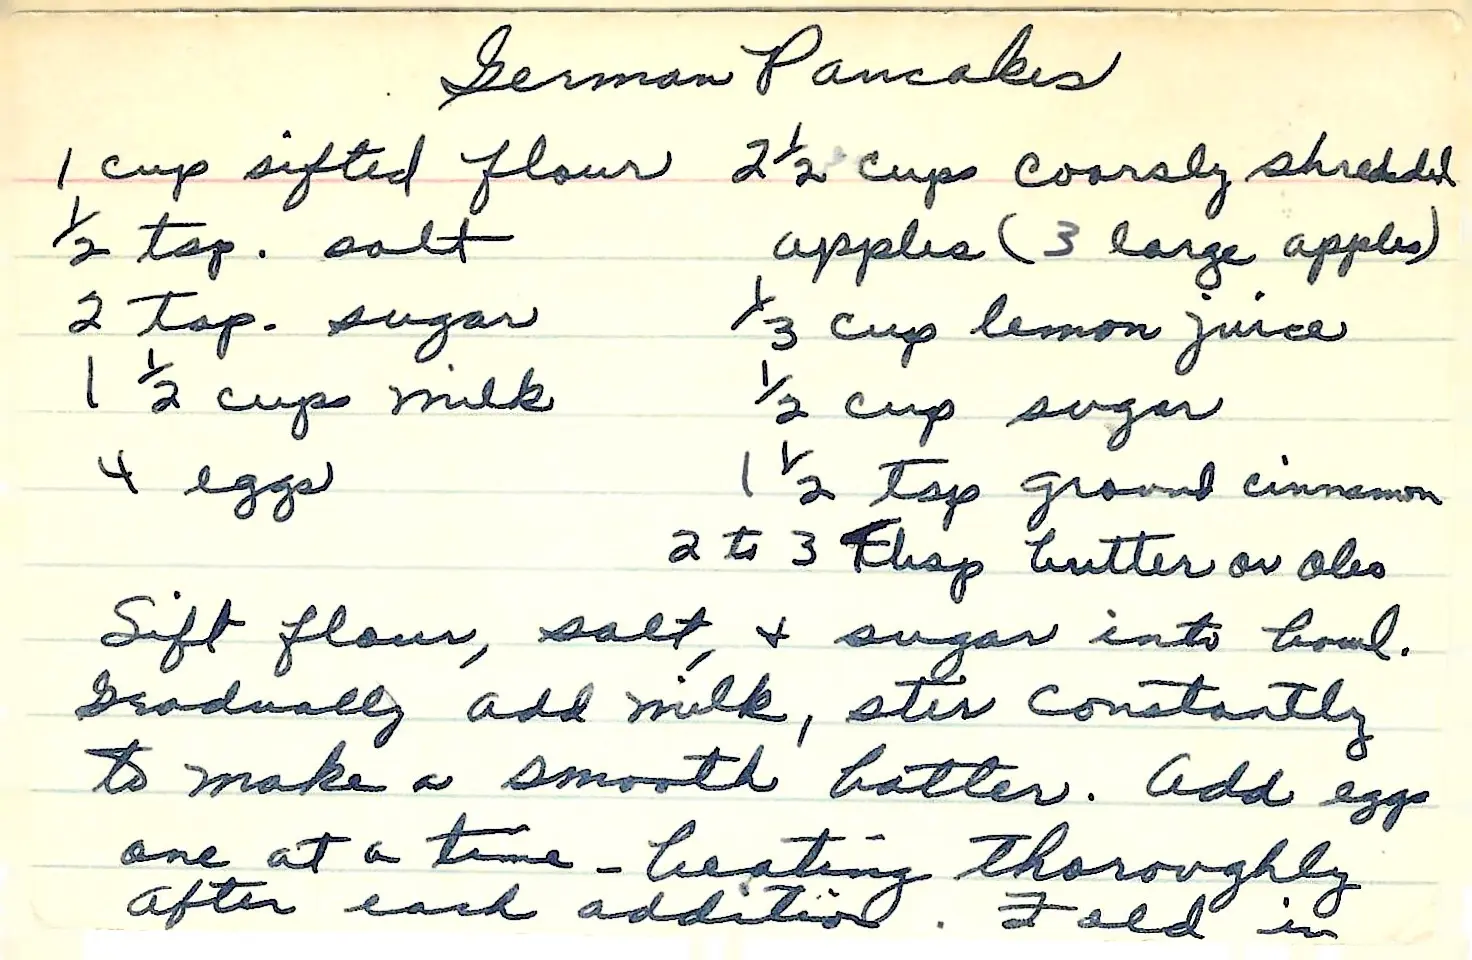 German Pancakes
1 cup sifted flour
1/2 tsp. salt
2 tsp. sugar
1 1/2 cups milk
4 eggs
2 1/2 cups coarsly shredded
apples (3 large apples)
1/3 cup lemon juice
1/2 cup sugar
1 1/2 tsp ground cinnamon
2 to 3 Tbsp butter or oleo
Sift flour, salt, + sugar into bowl.
Gradually add milk, stir constantly
to make a smooth batter. Add eggs
one at a time - beating thoroughly
after each addition. Fold in